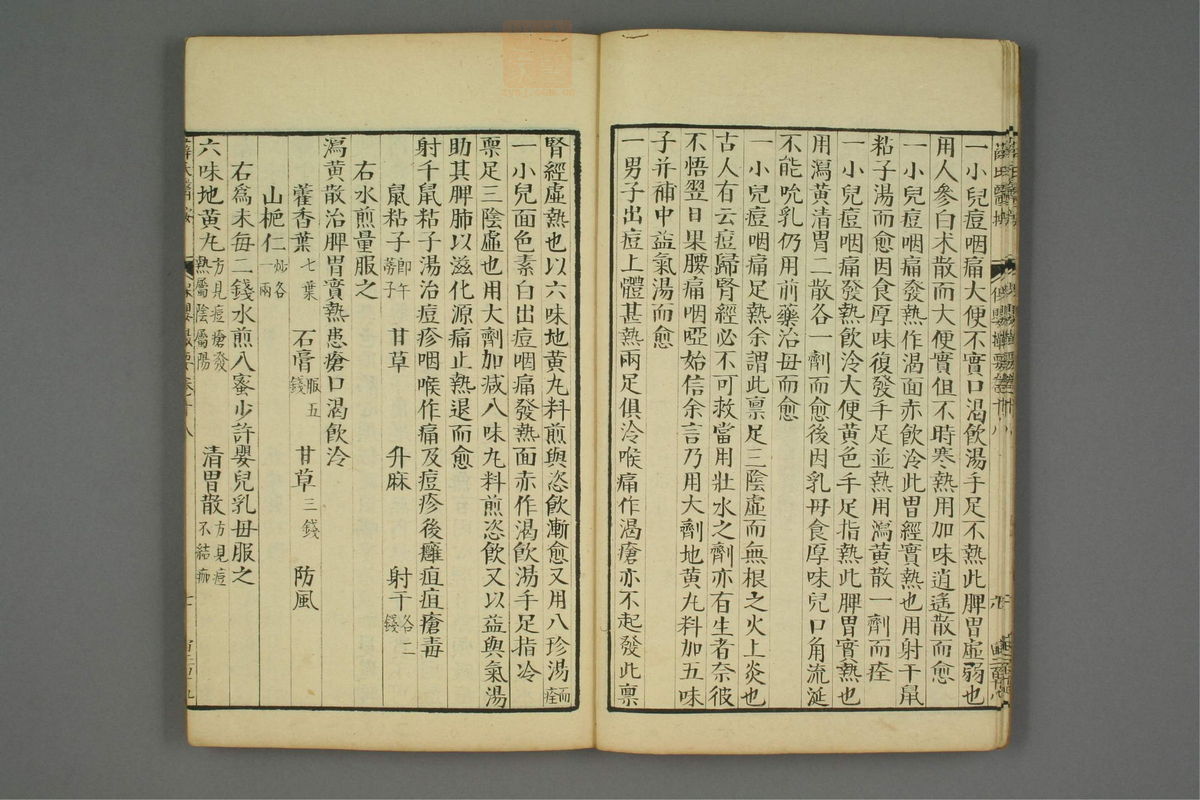 一小兒痘咽痛大便不實口渴飲湯手足不熱此脾胃虛弱也
用人參白术散而大便實但不時寒熱用加味逍遙散而愈
一小兒痘咽痛發熱作渴面赤飲冷此胃經實熱也用射干鼠
粘子湯而愈因食厚味復發手足並熱用瀉黃散一劑而痊
一小兒痘咽痛發熱飲冷大便黃色手足指熱此脾胃實熱也
用瀉黃清胃二散各一劑而愈後因乳母食厚味兒口角流涎
不能吮乳仍用前藥治母而愈
一小兒痘咽痛足熱余謂此禀足三陰虛而無根之火上炎也
古人有云痘歸腎經必不可救當用壯水之劑亦有生者奈彼
不悟翌日果腰痛咽啞始信余言乃用大劑地黄丸料加五味
子并補中益氣湯而愈
一男子出痘上體甚熱兩足俱冷喉痛作渴瘡亦不起發此禀
腎經虛熱也以六味地黄丸料煎與恣飲漸愈又用八珍湯而痊
一小兒面色素白出痘咽痛發熱面赤作渴飲湯手足指冷
禀足三陰虛也用大劑加減八味丸料煎恣飲又以益興氣湯
助其脾肺以滋化源痛止熱退而愈
射干鼠粘子湯治痘疹咽喉作痛及痘疹後癰疽疽瘡毒
鼠粘子即牛蒡子 甘草 升麻 射干各二錢
右水煎量服之
瀉黄散治脾胃實熱患瘡口渴飲冷
藿香葉七葉 石膏煅五錢 甘草三錢 防風
山梔仁炒各一兩
右為末每二錢水煎入蜜少許嬰兒乳母服之
六味地黄丸方見痘瘡發熱屬陰屬陽 清胃散方見痘不結痂